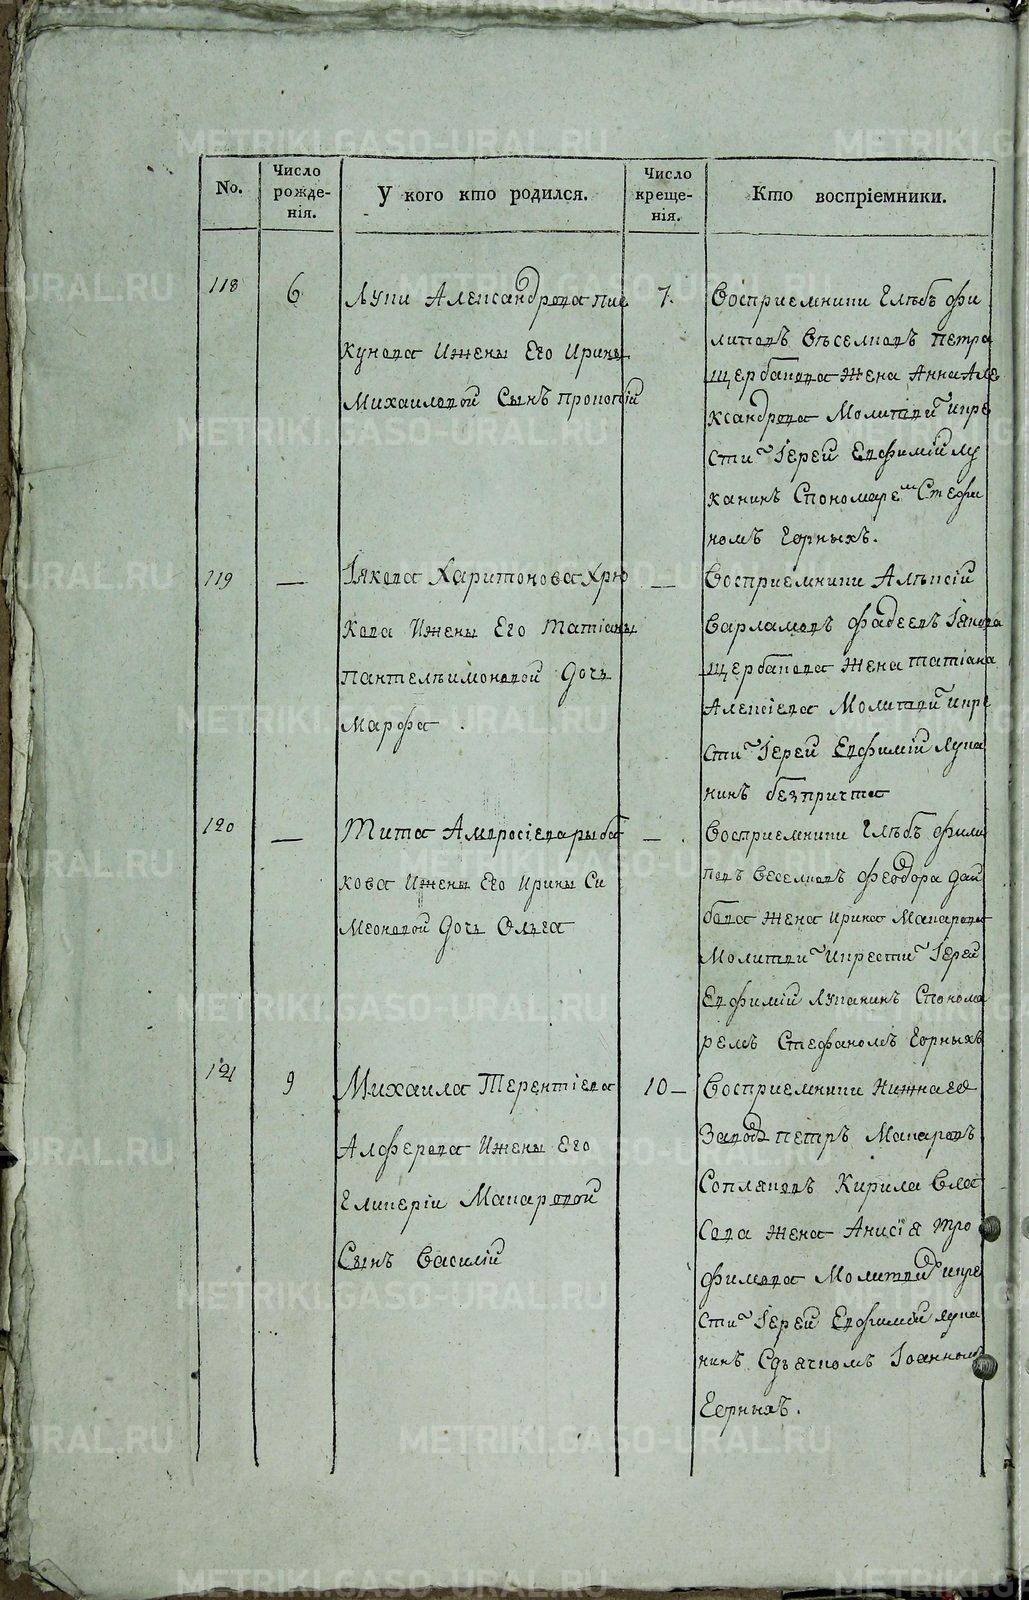 No.
Число рожде-
нія.
У кого кто родился.
Число креще-
нія.
Кто воспріемники.
118
6
Луки Александрова Пис
кунова Ижены Его Ирины
Михаиловой Сынъ Прокопій
7.
Восприемники Глѣбъ фи
липовъ Вѣселковъ Петра
щербакова Жена Анна Але
ксандрова Молитви икре
сти Іерей Евфимій Лу
канинъ Спономарем Стефа
номъ Горныхъ.
119
—
Іякова Харитонова Хрю
кова Ижены Его Татіаны
Пантелѣимоновой Дочь
Марфа
—
Восприемники Алѣксій
Варламовъ фадеевъ Іякова
щербакова Жена Татіана
Алексіева Молитви икре
сти Іерей Евфимій Лука
нинъ безпричта
120
—
Тита Амвросіева рыба
кова Ижены Его Ирины Си
меоновой Дочь Ольга
—
Восприемники Глѣбъ фили
повъ Веселковъ феодора
Жена Ирина Макарова
Молитви Икрести Іерей
Евфимій Луканинъ Спонома
ремъ Стефаномъ Горныхъ
121
9
Михаила Терентіева
Алферова Ижены Его
Гликеріи Макаровой
Сынъ Василій
10 —
Восприемники Нижнаго
Завода Петръ Макаровъ
Сопляковъ Кирила Вла
сова Жена Анисія Тро
фимова Молитви икре
сти Іерей Евфимій Лука
нинъ Сдьячкомъ Іоанномъ
Горныхъ.